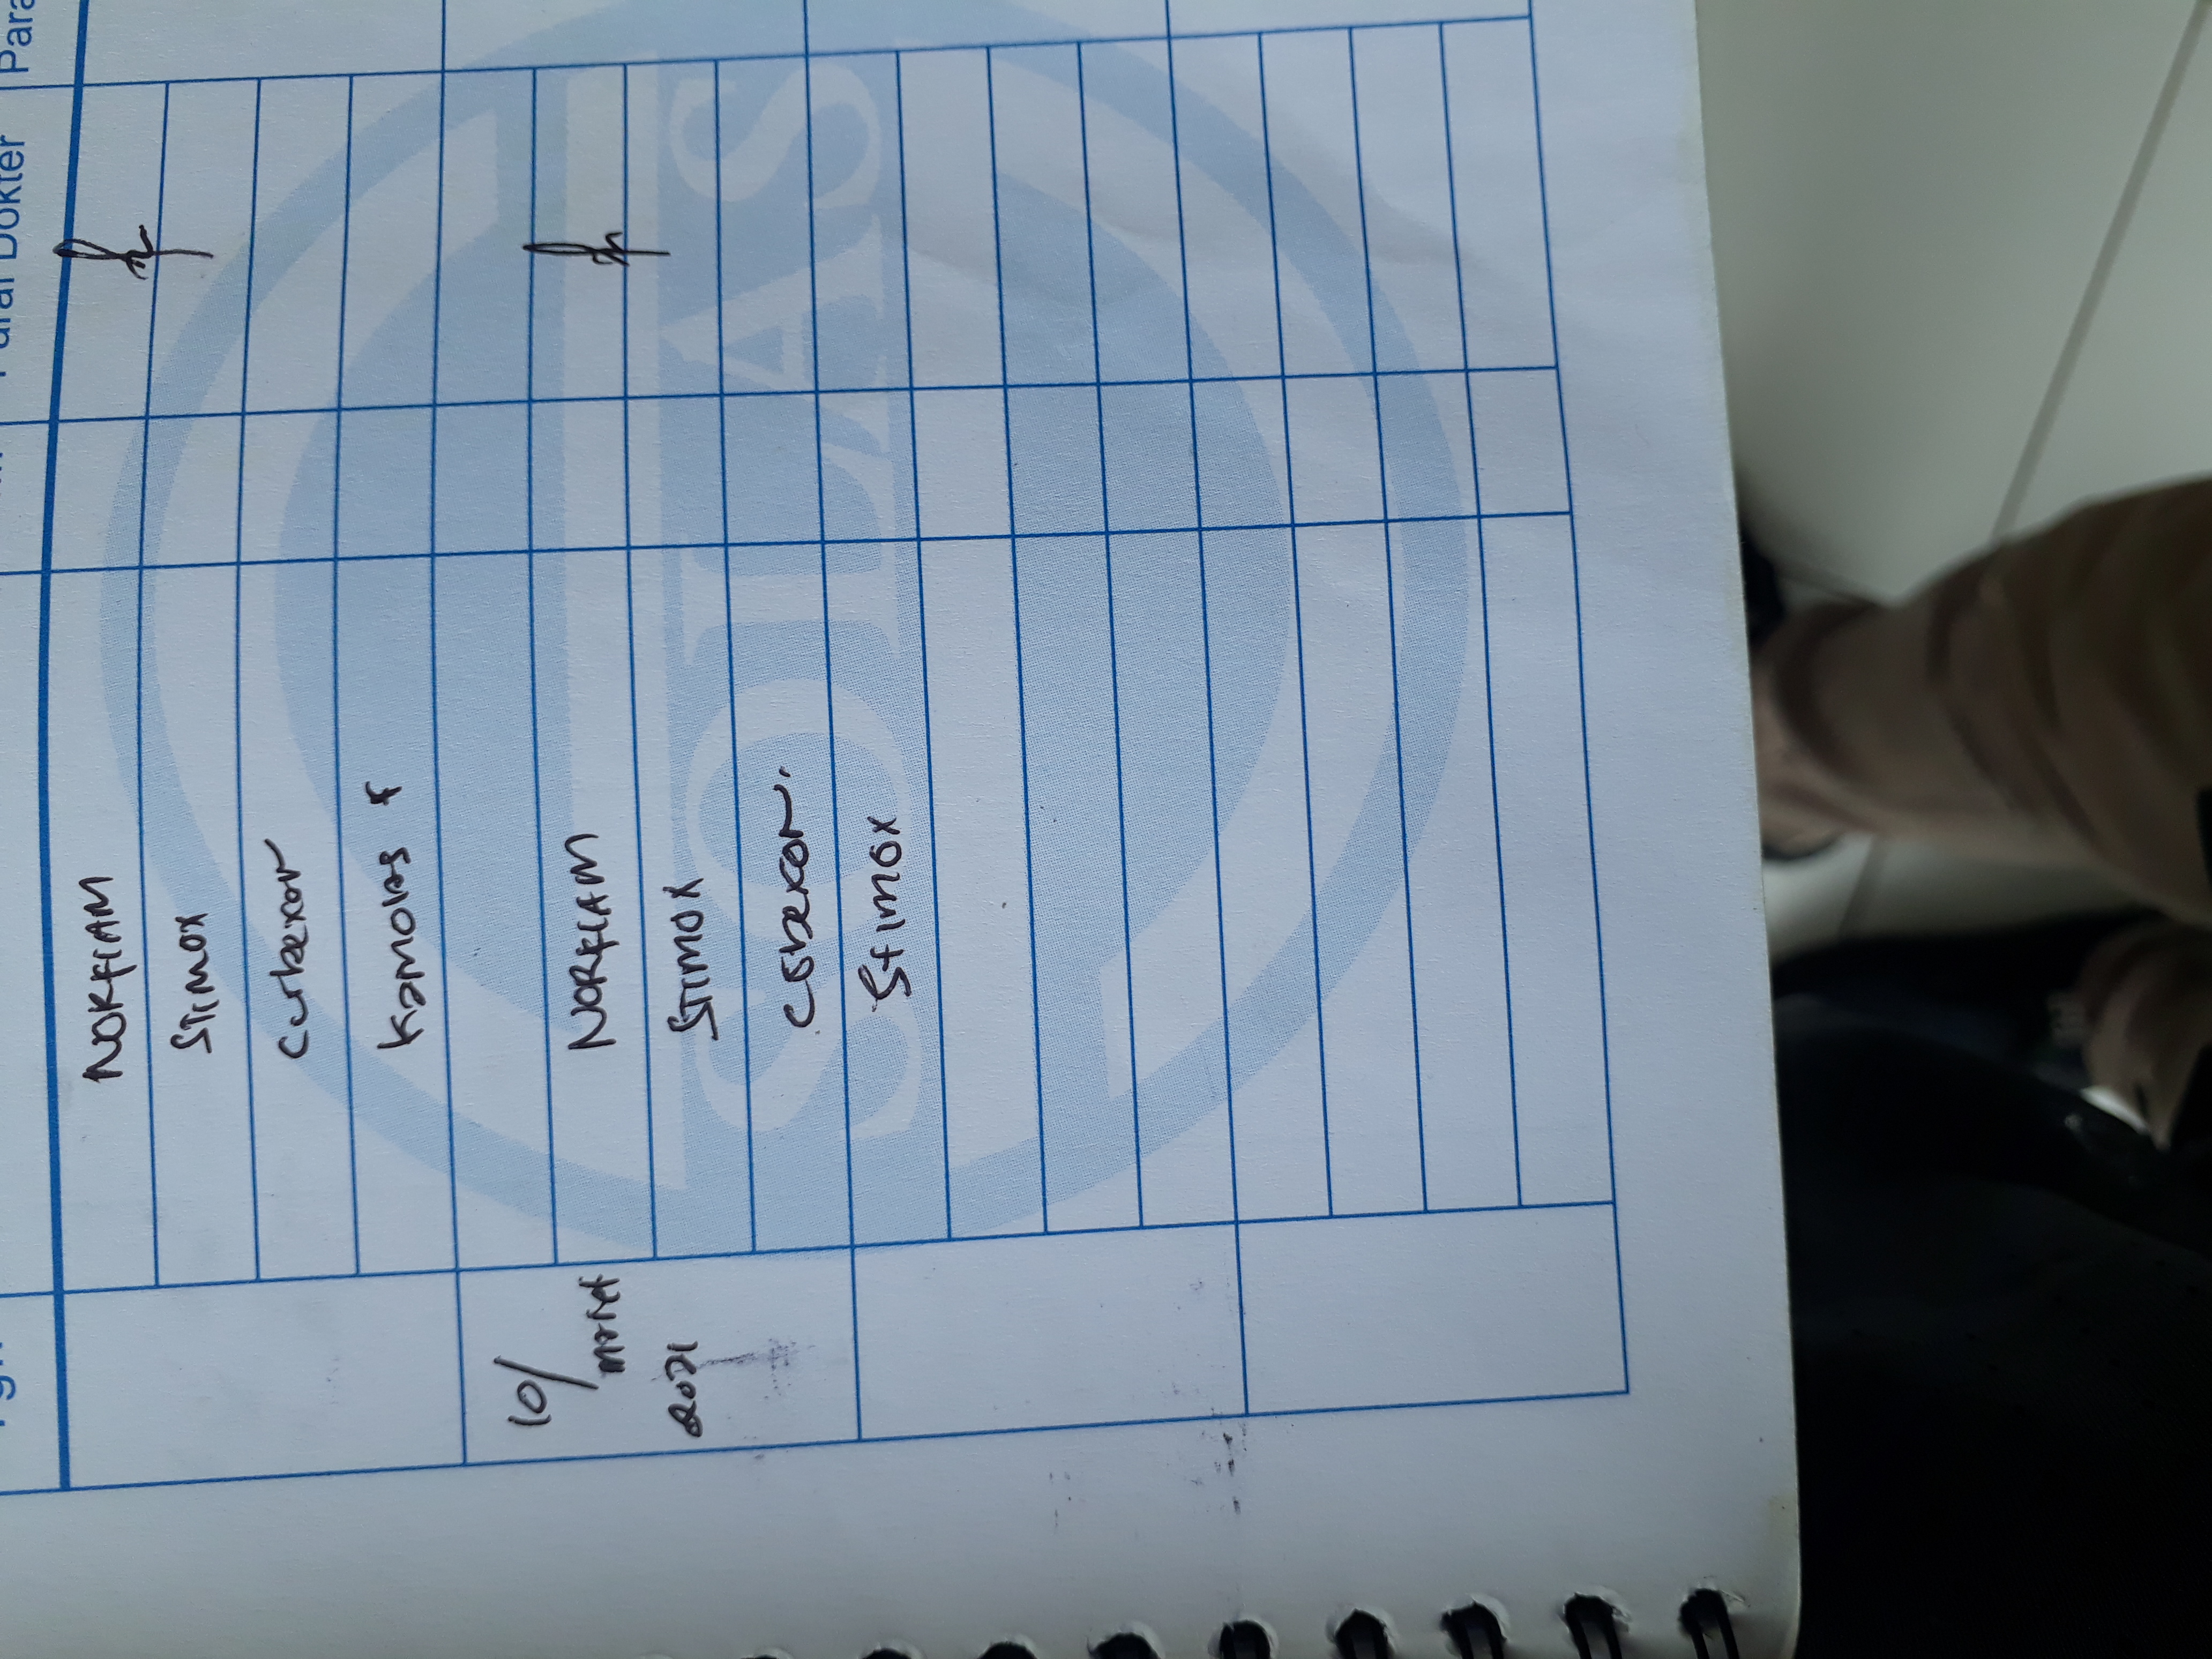 Paraf Dokter
NORFLAM
STIMOX
Curbexon
Kamolas F
10/
maret
2021
NORFLAM
STIMOX
Cobexon.
STIMOX
SOLAS